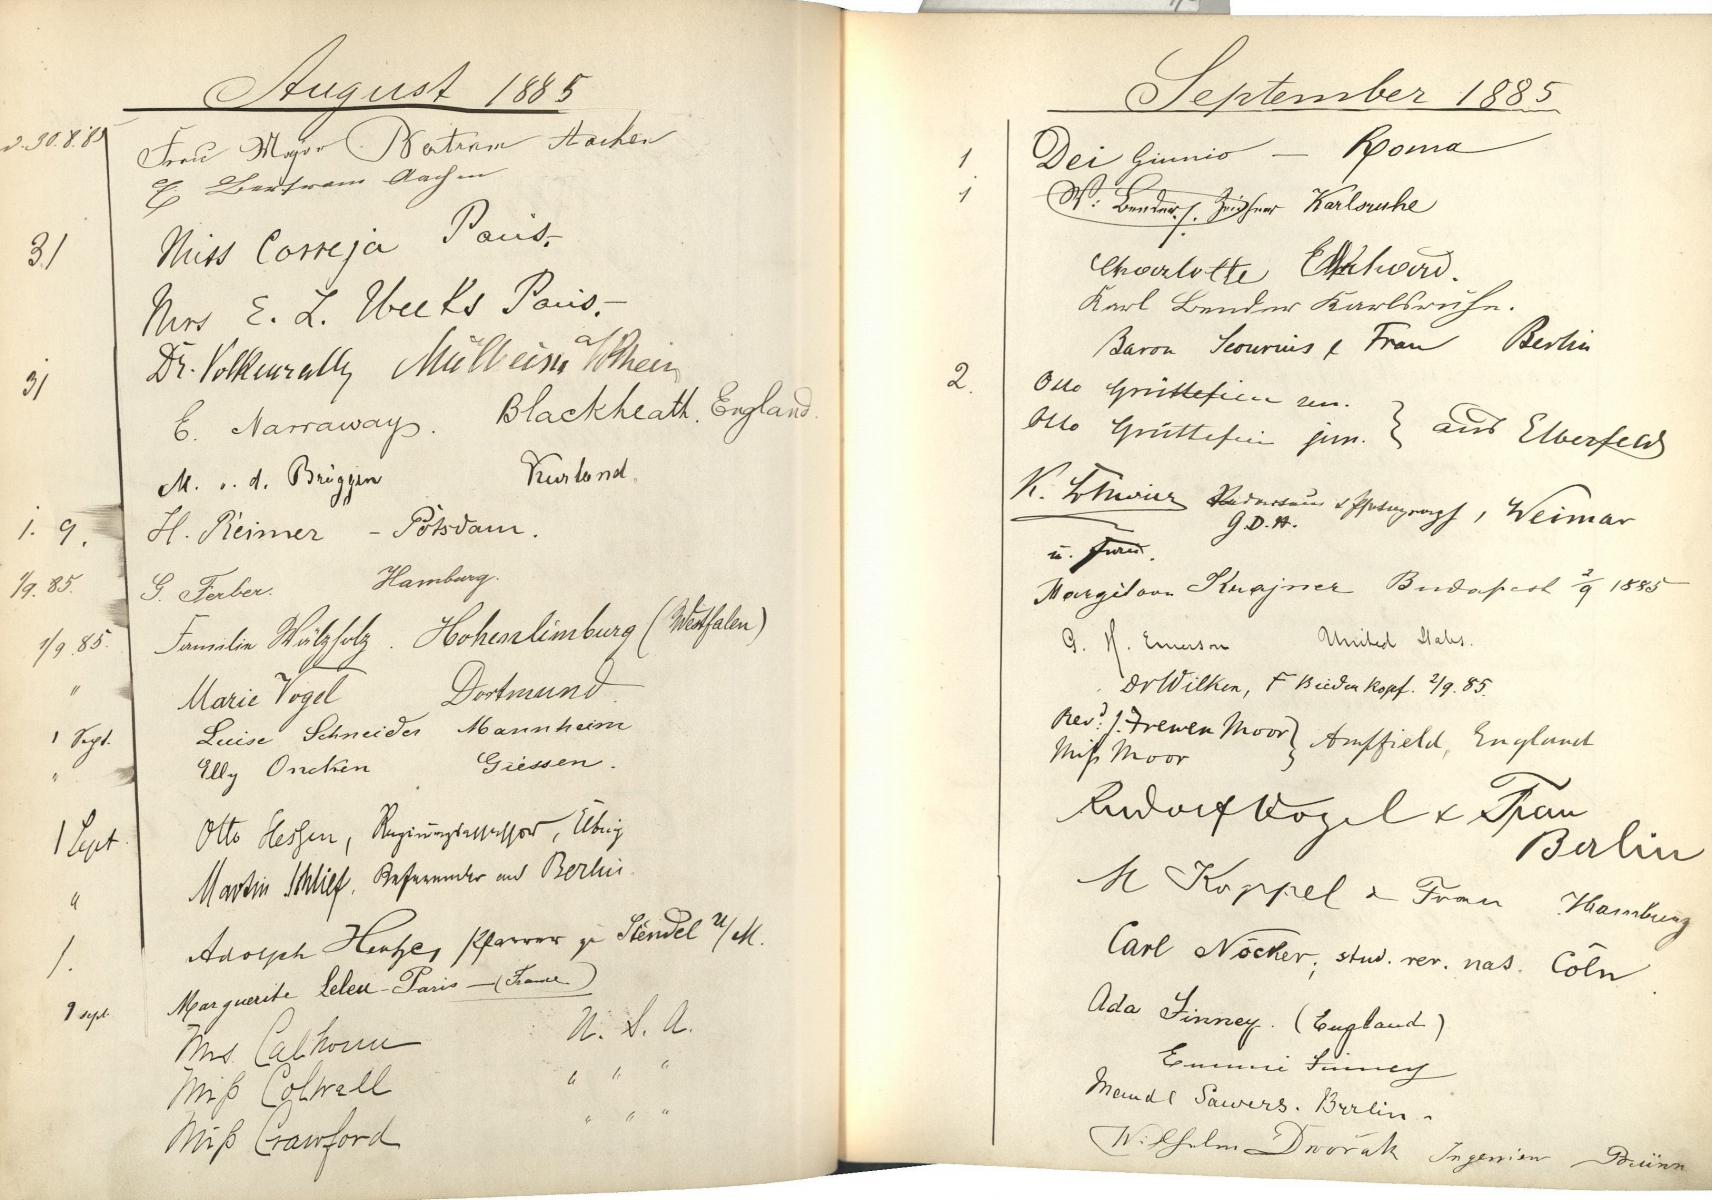 August 1885
d. 30.8.85 Frau Major Bertram Aachen
E Bertram Aachen
31 Miss Correja Paris.
Mrs E. L. Weeks Paris.
31 Dr. Mülheim a/Rhein
E. Narraway. Blackheath. England.
M. v. d. Brüggen Kurland.
1. 9. H. Reimer - Potsdam.
1/9. 85. G. Ferber. Hamburg.
1/9. 85. Familie Wälzholz. Hohenlimburg (Westfalen)
" Marie Vogel Dortmund
1 Sept. Luise Schneider Mannheim
" Elly Oncken Giessen.
1 Sept Otto Hessen, Regierungsassessor, Elbing
" Martin Schlief, Referendar aus Berlin.
1. Adolph Pfarrer zu Stendel a/M.
Marguerite Leleu - Paris - (France)
1 sept. Mrs. Calhoun U. S. A.
Miß Colwell " " "
Miß Crawford " " "
September 1885
1 Dei Giunnio - Roma
1 W. Bender, Karlsruhe
Charlotte
Karl Bender Karlsruhe.
Baron & Frau Berlin
2. Otto Grüttefien sen.
Otto Grüttefien jun. } aus Elberfeld
K. & Photograph, Weimar
G.D.A.
u. Frau.
Budapest 2/9 1885
G. H. Emerson United States.
Dr Wilken, F Biedenkopf. 2/9. 85.
Revd. J. Frewen Moor
Miß Moor } Amffield, England
Rudolf Vogel & Frau
Berlin
M Koppel & Frau Hamburg
Carl Nöcker, stud. rer. nat. Cöln
Ada Finney. (England)
Emmie Finney
Maude Sawers. Berlin.
Wilhelm Dvořák Ingenieur Brünn